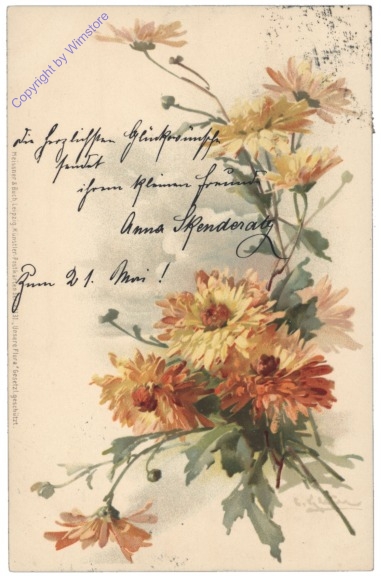 Copyright by Wimstore
die herzlichsten Glückwünsche
sendet
ihrem kleinen Freunde
Anna
Zum 21. Mai!
Meissner & Buch, Leipzig. Künstler-Postkarten Serie "Unsere Flora" Gesetzl. geschützt.
C. Klein